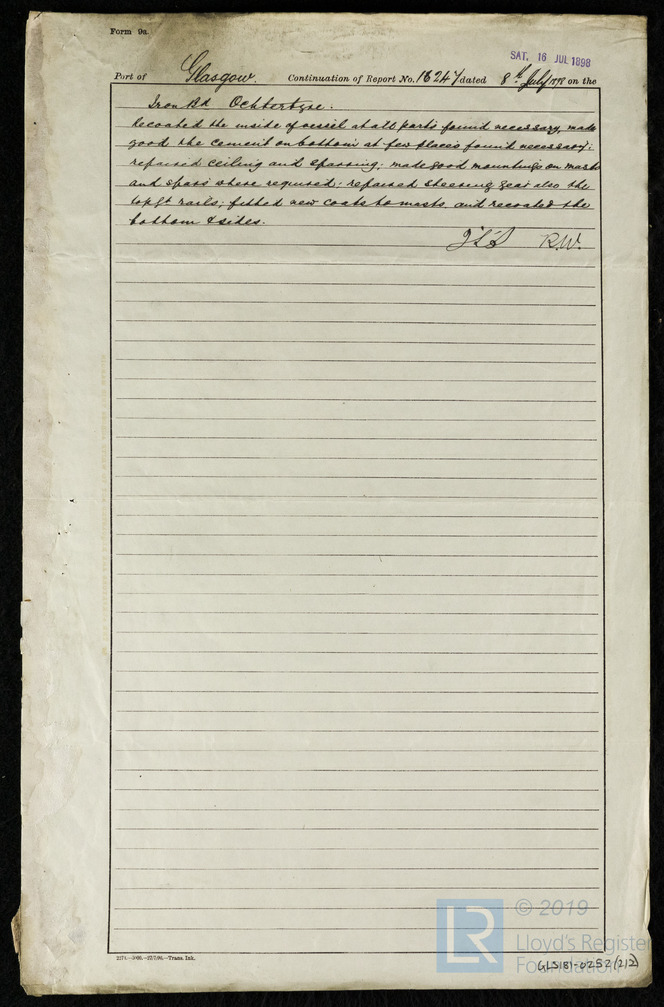 Form 9a.
SAT. 16 JUL 1898
Port of Glasgow. Continuation of Report No. 16247 dated 8th July 1898 on the
Iron Bk Ochtertyre.
Recoated the inside of vessel at all parts found necessary, made
good the cement on bottom at few places found necessary;
repaired ceiling and sparring; made good mountings on masts
and spars where required; repaired steering gear also the
topgt rails; fitted new coats to masts, and recoated the
bottom & sides.
R.W.
© 2019
LR
Lloyd's Register
Foundation
GLS181-0252(2/2)